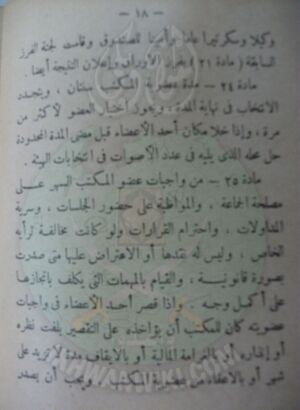 — ١٨ —
وكيلا وسكرتيرا عاما وأمينا للصندوق وقامت لجنة الفرز
السابقة ( مادة ٢١ ) بفرز الأوراق وإعلان النتيجة أيضا .
مادة ٢٤ — مدة عضوية المكتب سنتان ، ويتجدد
الانتخاب فى نهاية المدة ، ويجوز اختيار العضو لأكثر من
مرة ، وإذا خلا مكان أحد الأعضاء قبل مضى المدة المحدودة
حل محله الذى يليه فى عدد الأصوات فى انتخابات الهيئة .
مادة ٢٥ — من واجبات عضو المكتب السهر على
مصلحة الجماعة ، والمواظبة على حضور الجلسات ، وسرية
المداولات ، واحترام القرارات ولو كانت مخالفة لرأيه
الخاص ، وليس له نقدها أو الاعتراض عليها متى صدرت
بصورة قانونية ، والقيام بالمهمات التى يكلف بإنجازها
على أكمل وجه . وإذا قصر أحد الأعضاء فى واجبات
عضويته كان للمكتب أن يؤاخذه على التقصير بلفت نظره
أو إنذاره أو بالغرامة المالية أو بالايقاف مدة لا تزيد على
شهر أو بالاعفاء من عضوية المكتب . ويجب أن يصدر